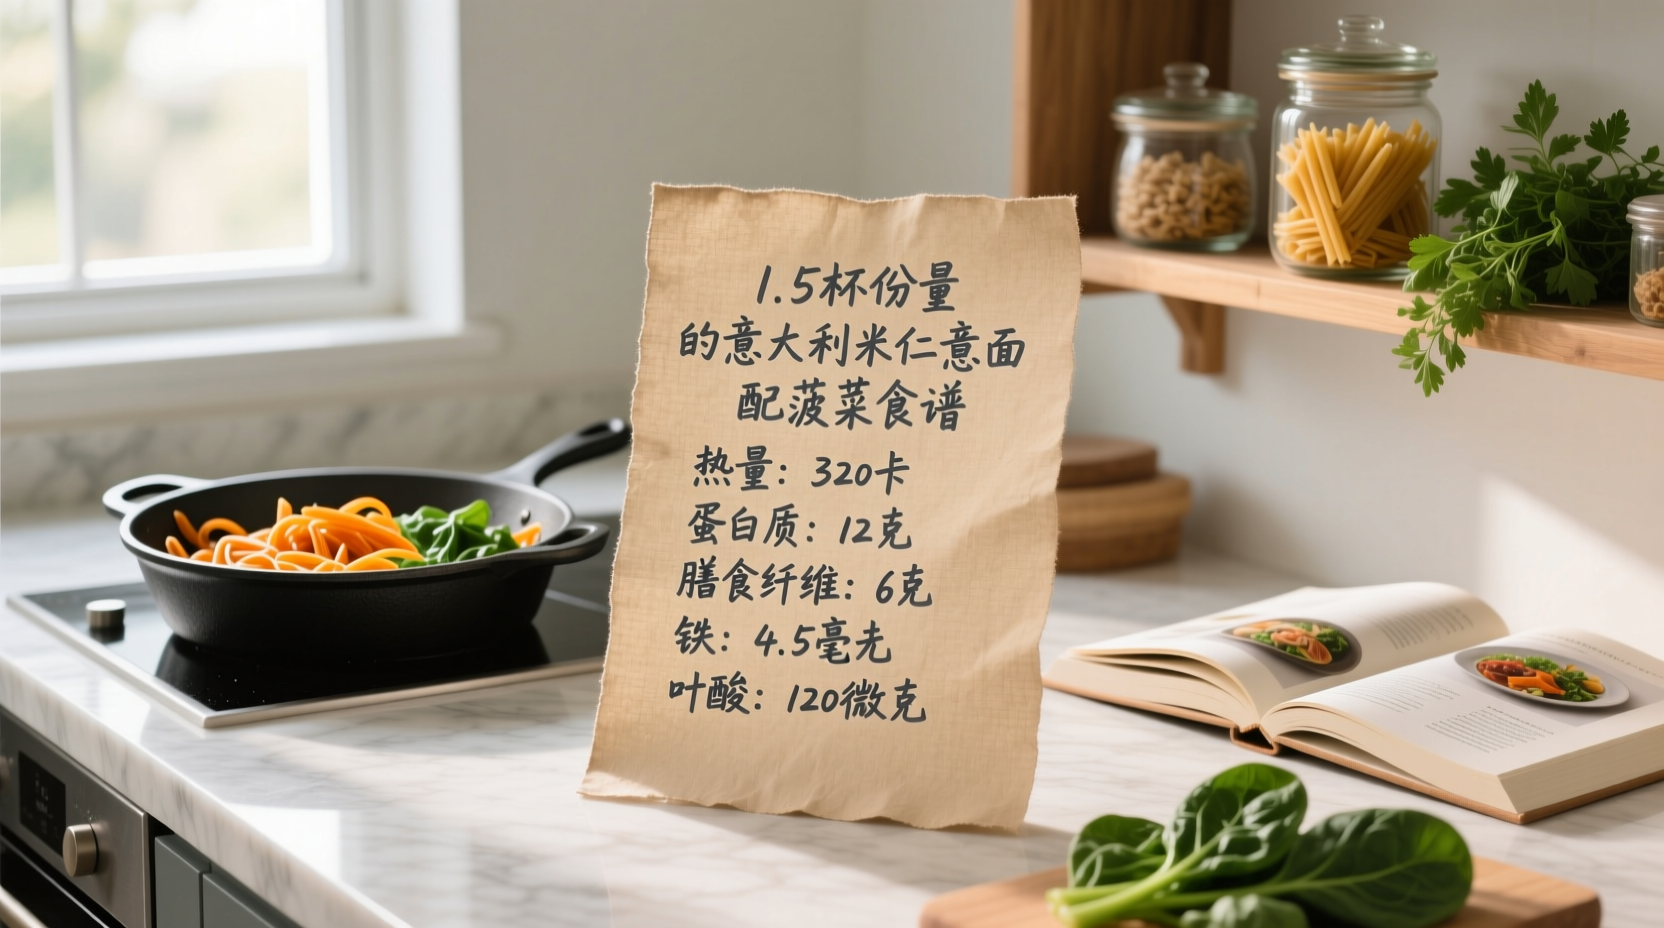 1.5杯份量
的意大利米仁意面
配菠菜食谱
热量：320卡
蛋白质：12克
膳食纤维：6克
铁：4.5毫克
叶酸：120微克